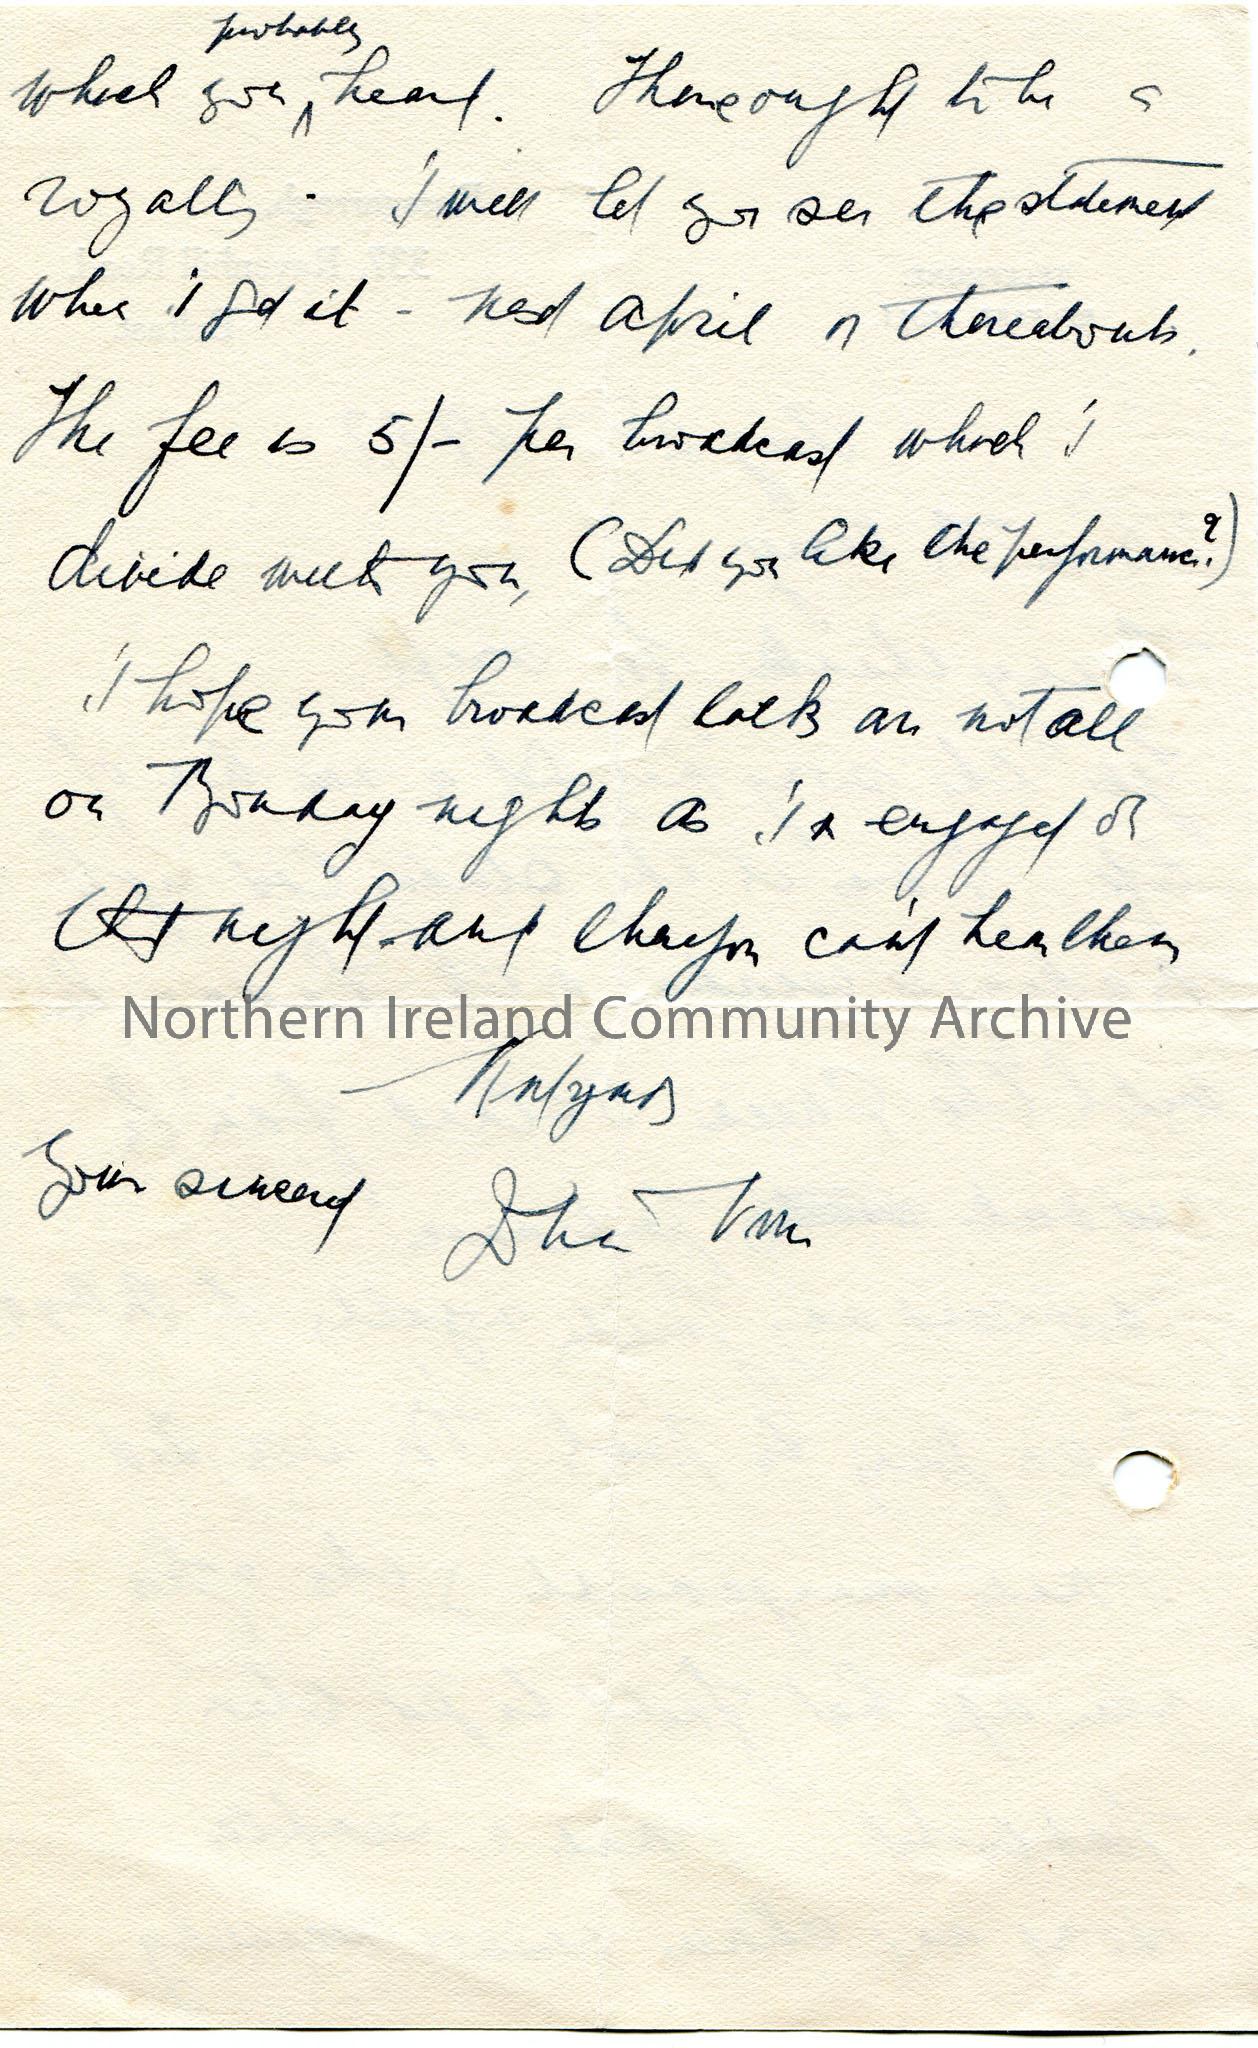 probably
which you ^ heard. There ought to be a
royalty - I will let you see the statement
when I get it - next April or thereabouts.
The fee is 5/- per broadcast which I
divide with you, (Did you like the performance?)
I hope your broadcast talks are not all
on Monday nights as I'm engaged on
that night and therefore can't hear them
Northern Ireland Community Archive
Kind regards
Yours sincerely